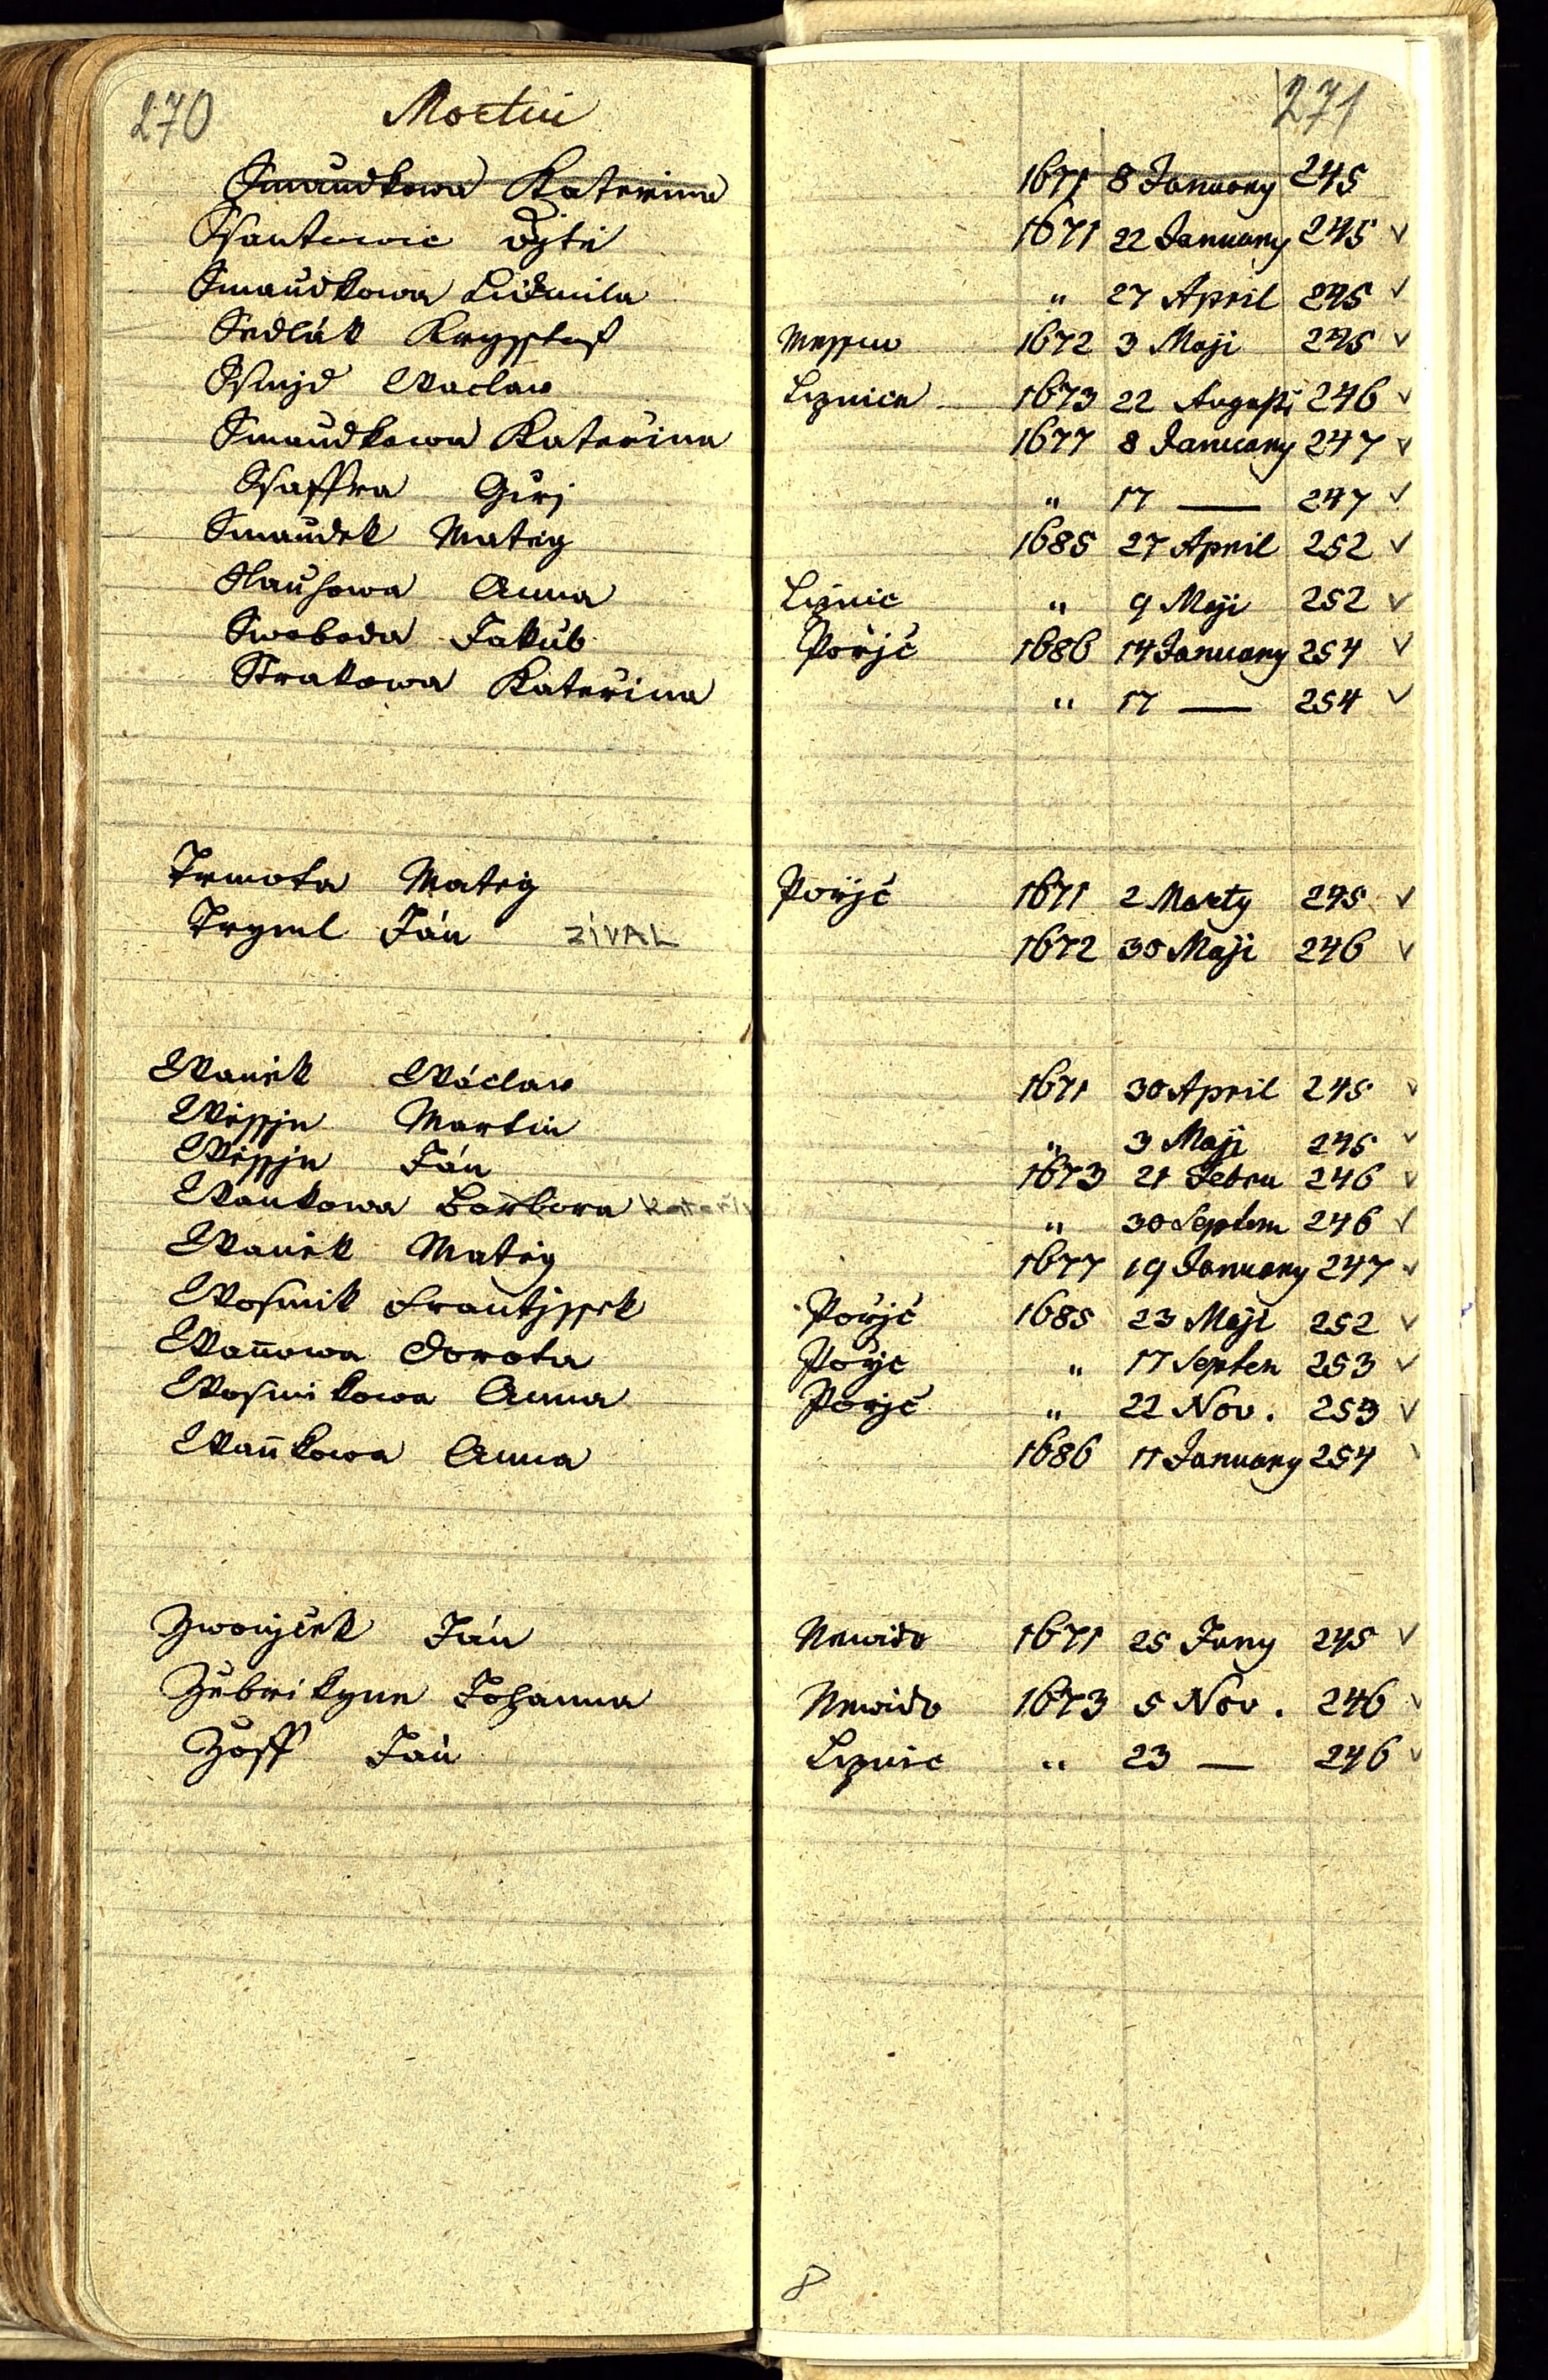 270 Mortui 271
Smaudkowa Katerina 1671 8 January 245
Ssantowic 1671 22 January 245 ✓
Smaudkowa Lidmila " 27 April 245 ✓
Sedlák Krysstof 1672 3 Maji 245 ✓
Ssmjd Waclaw Lznice 1673 22 Augusti 246 ✓
Smaudkowa Kateřina 1677 8 January 247 ✓
Ssaffra Girj " 17 — 247 ✓
Smaudek Mateg 1685 27 April 252 ✓
Slauhowa Anna Liznic " 9 Maji 252 ✓
Swoboda Jakub Pořjč 1686 14 January 254 ✓
Strakowa Kateřina " 17 — 254 ✓
Trmota Mateg Pořjč 1671 2 Marty 245 ✓
Tryml Ján ZÍVAL 1672 30 Maji 246 ✓
Waněk Wáclaw 1671 30 April 245 ✓
Wěssjn Martin " 3 Maji 245 ✓
Wěssjn Ján 1673 21 Febru 246 ✓
Wankowa Barbora Kateři " 30 Septem 246 ✓
Waněk Mateg 1677 19 January 247 ✓
Wosmik Frantjssek Pořjč 1685 23 Maji 252 ✓
Waňowa Dorota Pořjc " 17 Septem 253 ✓
Wosmikowa Anna Pořjč " 22 Nov. 253 ✓
Waňkowa Anna 1686 11 January 254 ✓
Zwonjček Ján Newido 1671 25 Juny 245 ✓
Zubrikyne Johanna Newido 1673 5 Nov. 246 ✓
Zoff Ján Lznic " 23 — 246 ✓
8